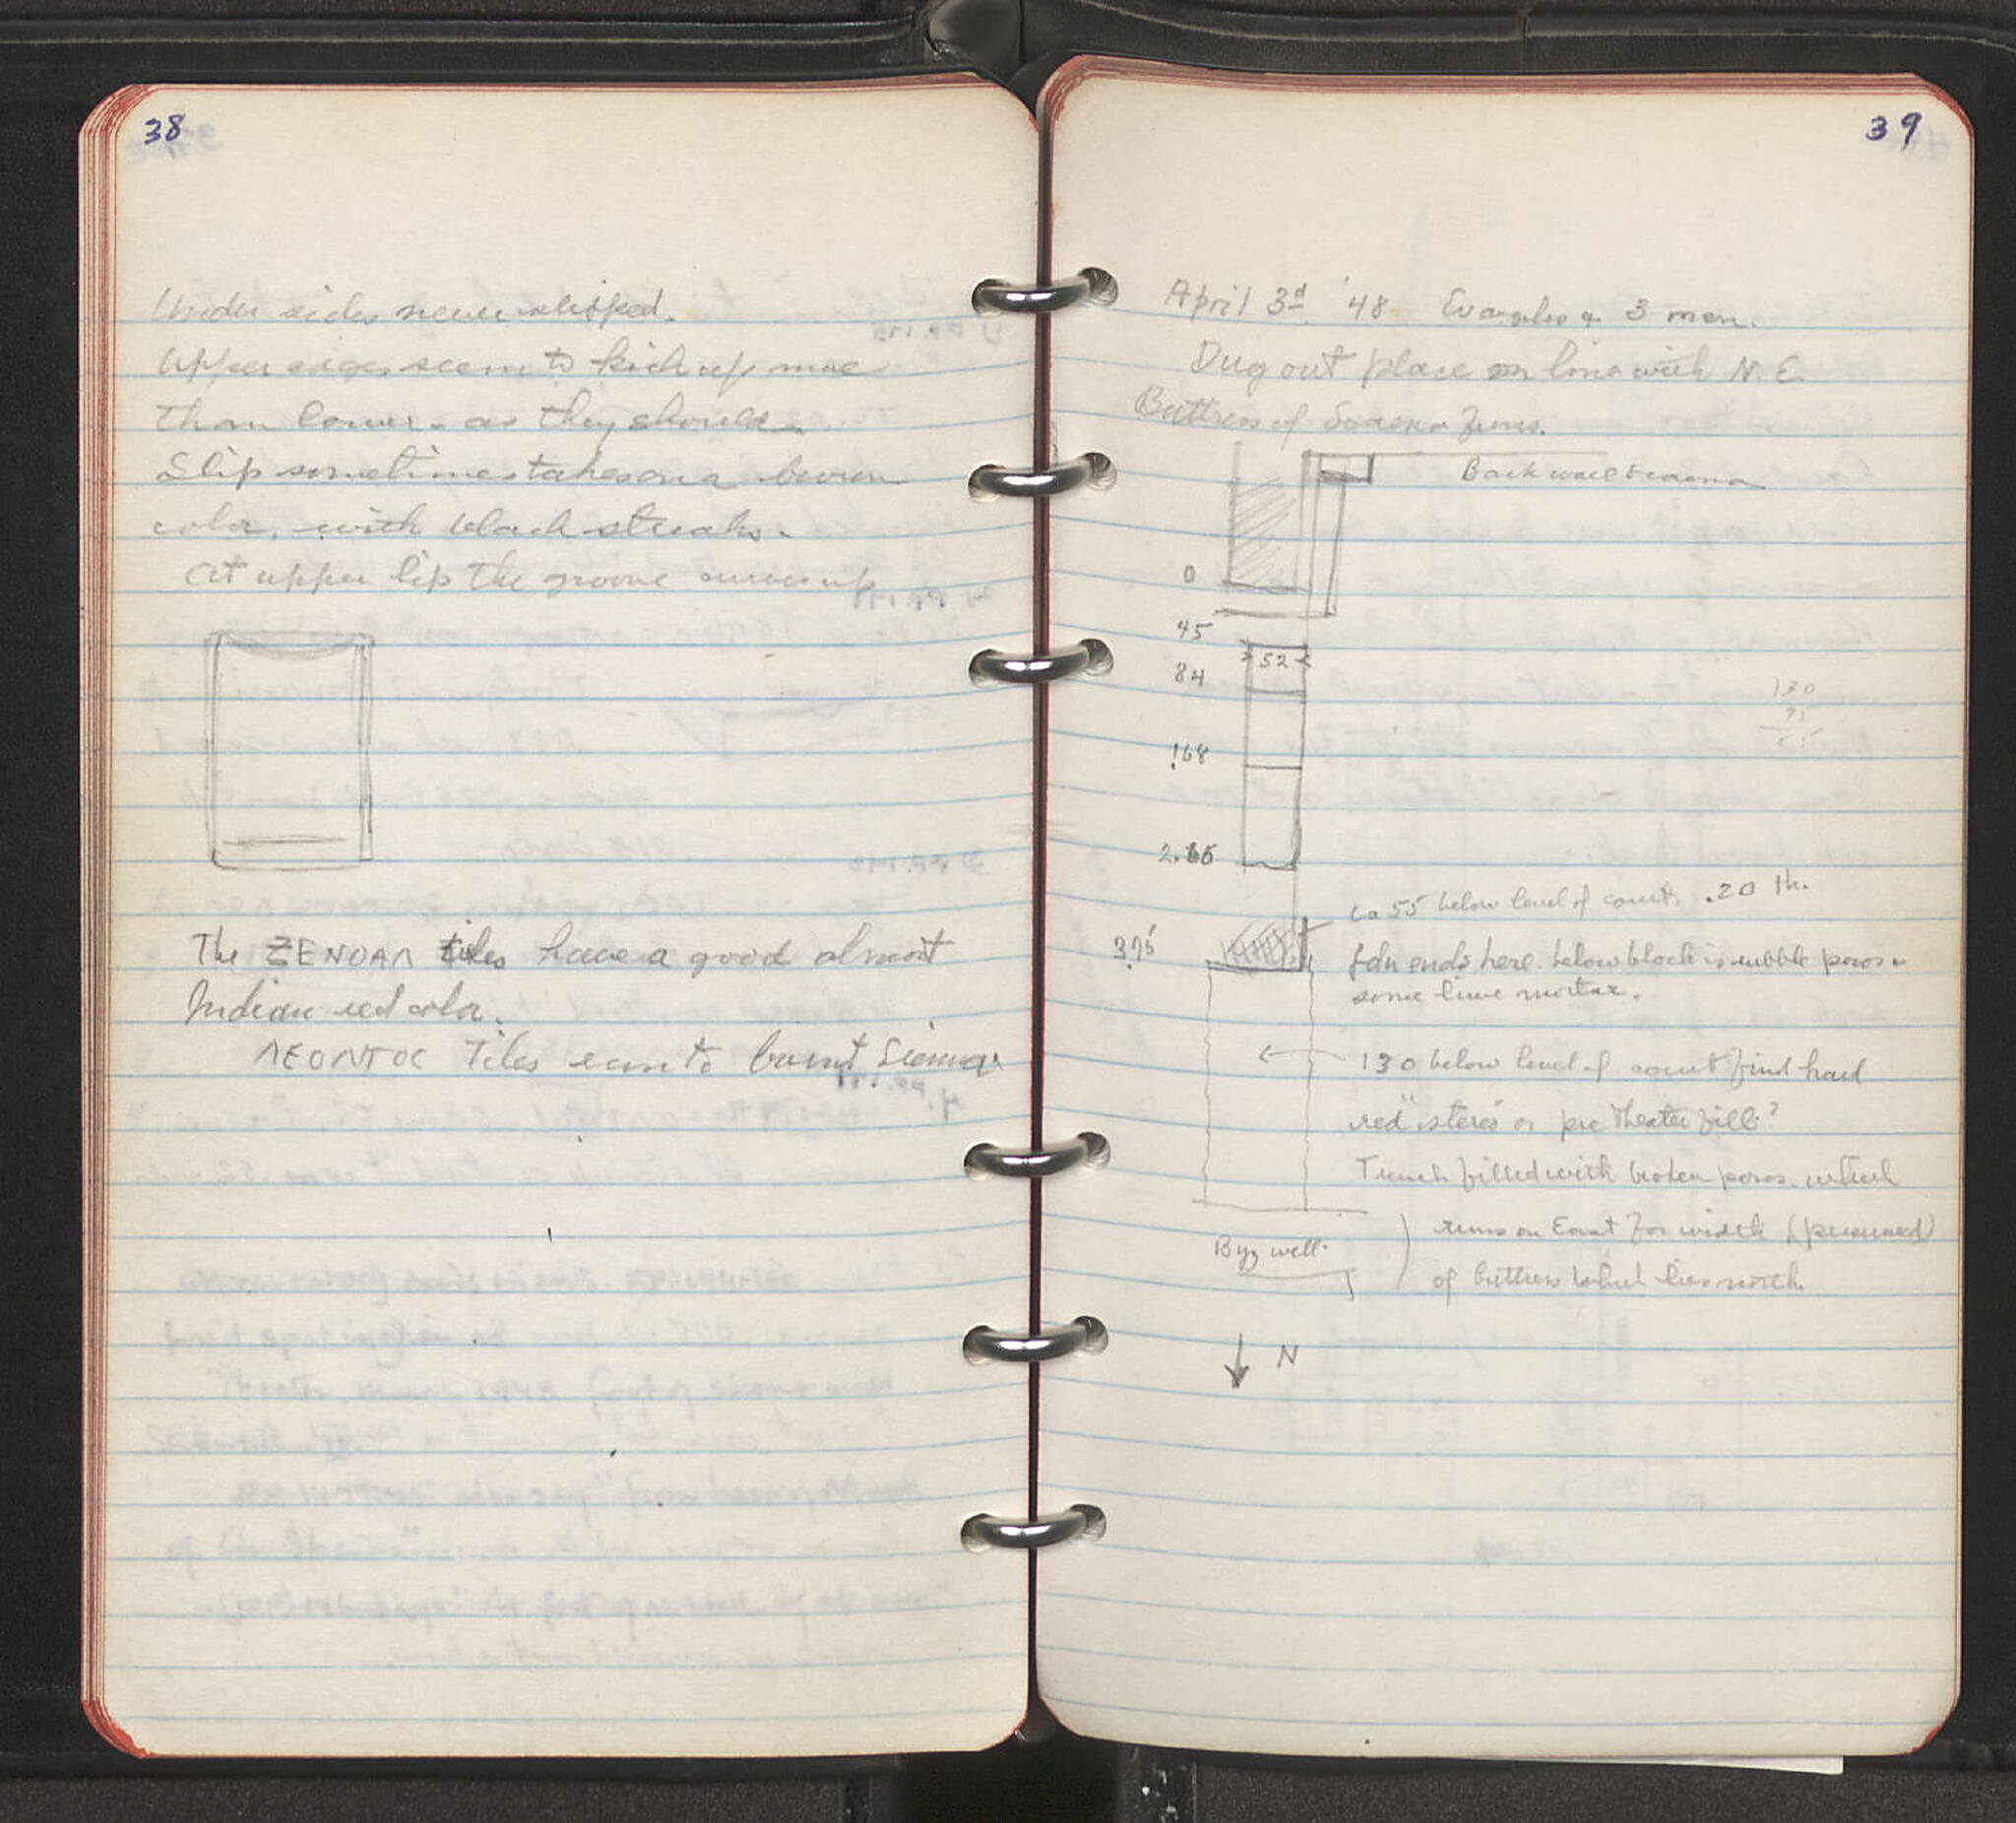 38
Under sides never slipped.
Upper edges seem to kick up more
than lower - as they should.
Slip sometimes takes on a brown
color, with black streaks.
At upper lip the groove curves up
The ΖΕΝΟΔΛ tiles have a good almost
Indian red color.
ΛΕΟΝΤΟC Tiles burnt Sienna
39
April 3d '48 3 men.
Dug out place on line with N.E.
Buttress of Scaena Fons.
Back wall scaena
0
45
52
84
168
130
2.65
ca 55 below level of court. .20 th.
3.75
fdn ends here. below block is rubble poros &
some lime mortar.
130 below level of court find hard
red "stereo" or pre Theater fill?
Trench filled with broken poros. which
runs on East for width (presumed)
Byz well.
of buttress which lies north.
N